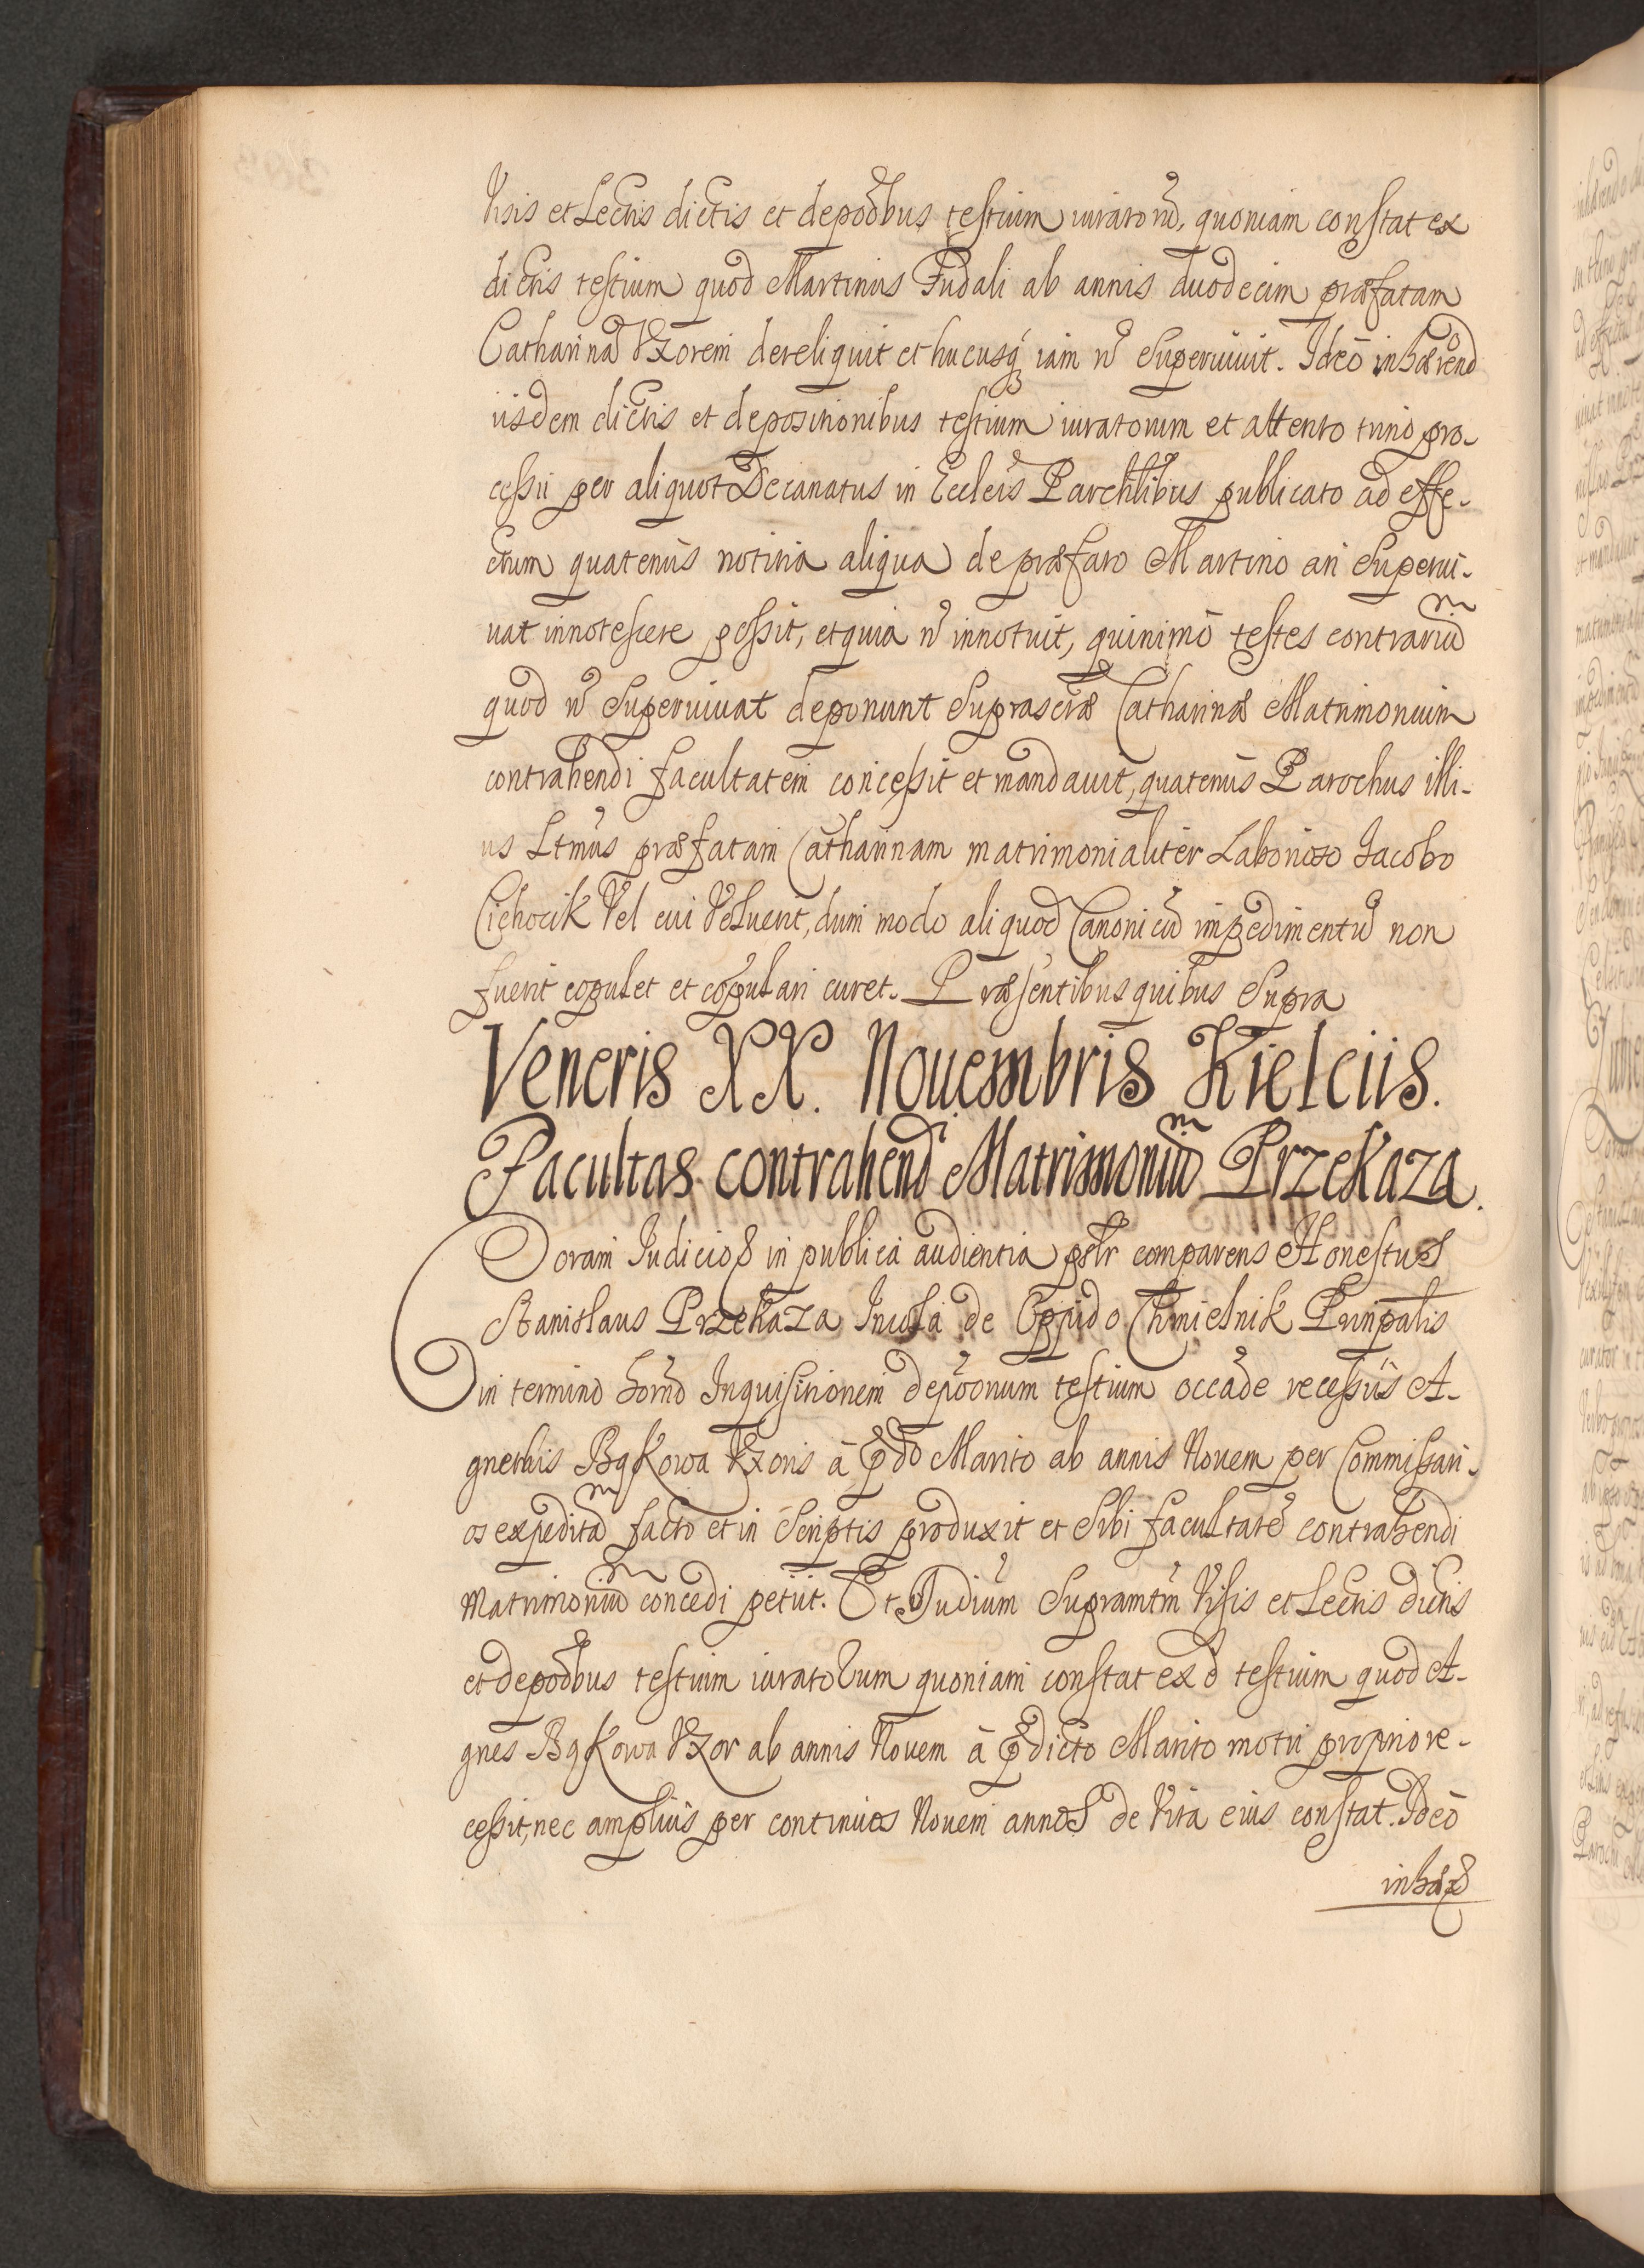 Visis et Lectis dictis et depoōbus testium iuratorū, quoniam constat ex
dictis testium quod Martinus Fudali ab annis duodecim præfatam
Catharinā Vxorem dereliquit et hucusq iam n̄ Superuiuit. Ideō inhærend
iisdem dictis et depositionibus testium iuratorum et attento trino pro-
cessu per aliquot Decanatus in Eccleīs Parchlībus publicato ad effe-
ctum quatenus notitia aliqua de præfato Martino an Superui-
uat innotescere possit, et quia n̄ innotuit, quinimò testes contrariū
quod n̄ Superuiuat deponunt Suprascræ Catharinæ Matrimonium
contrahendi facultatem concessit et mandauit, quatenus Parochus illi-
us Ltmūs præfatam Catharinam matrimonialiter Laborioso Iacobo
Cichocik Vel cui Voluerit, dum modo aliquod Canonicū impedimentū non
fuerit copulet et copulari curet. Præsentibus quibus Supra
Veneris XX. Nouembris Kielciis.
Facultas contrahend Matrimoniū Przekaza.
Coram Iudicio et in publica audientia pslr comparens Honestus
Stanislaus Przekaza Incola de Oppido Chmielnik Prinpalis
in termino horno Inquisitionem depōonum testium occāde recessus A-
gnethis Bąkowa Vxoris à p̄do Marito ab annis Nouem per Commissari-
os expeditā facto et in Scriptis produxit et Sibi facultatē contrahendi
Matrimoniū concedi petiit. Et Iudiūm Supramtm Visis et Lectis dictis
et depoōbus testium iuratorum quoniam constat ex d testium quod A-
gnes Bąkowa Vxor ab annis Nouem à p̄dicto Marito motu proprio re-
cessit, nec amplius per continuos Nouem annos de Vita eius constat. Ideō
inhæ